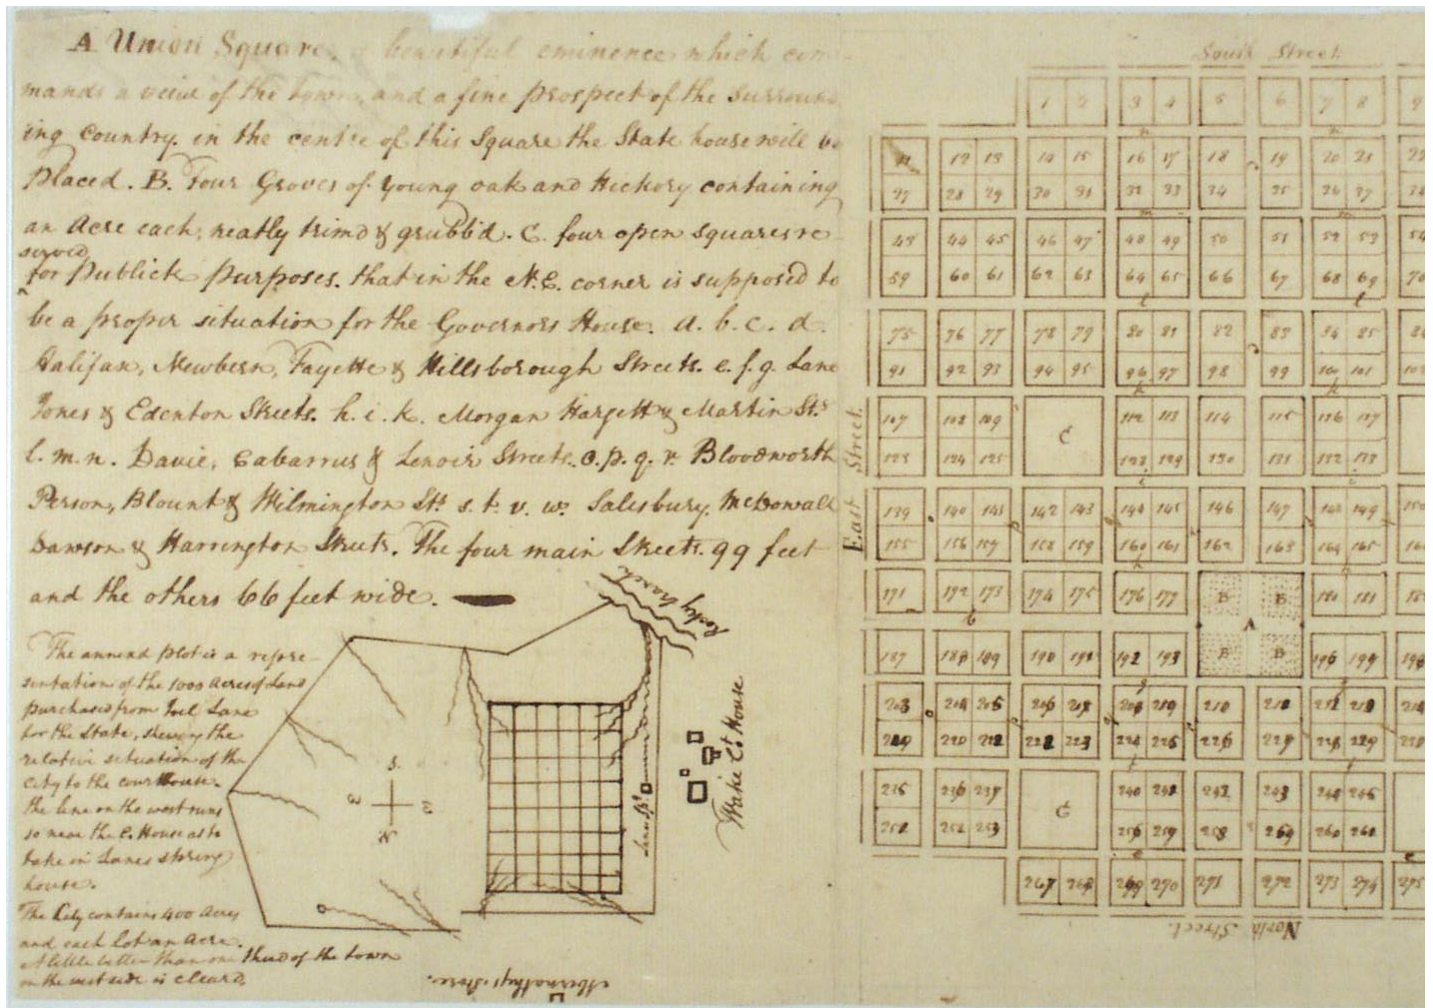 A Union Square, a beautiful eminence which com
mands a view of the town, and a fine prospect of the surround
ing Country. in the centre of this Square the State house will be
placed. B. Four Groves of young oak and Hickory containing
an Acre each, neatly trimd & grubb'd. C. four open squares re
served
for Publick Purposes. that in the N.E. corner is supposed to
be a proper situation for the Governors House. a. b. c. d.
Halifax, Newbern, Fayette & Hillsborough Streets. e. f. g. Lane
Jones & Edenton Streets. h. i. k. Morgan Hargett & Martin Sts
l. m. n. Davie, Cabarrus & Lenoir Streets. o. p. q. r. Bloodworth
Person, Blount & Wilmington Sts s. t. v. w. Salesbury, McDowall
Dawson & Harrington Streets. The four main Streets. 99 feet
and the others 66 feet wide.
The annexd plot is a repre-
sentation of the 1000 Acres of Land
purchased from Joel Lane
for the State, shewing the
relative situation of the
City to the court House.
the line on the west runs
so near the C. House as to
take in Lanes spring
house.
The City contains 400 Acres
and each lot an Acre.
A little better than one third of the town
on the west side is cleard.
Rocky branch
S
W E
N
Wake Ct. House
Abernathys store.
South Street
1 2 3 4 5 6 7 8 9
11 12 13 14 15 16 17 18 19 20 21 22
27 28 29 30 31 32 33 34 35 36 37
43 44 45 46 47 48 49 50 51 52 53 54
59 60 61 62 63 64 65 66 67 68 69 70
75 76 77 78 79 80 81 82 83 84 85
91 92 93 94 95 96 97 98 99 100 101
107 108 109 C 112 113 114 115 116 117
123 124 125 128 129 130 131 132 133
East Street.
139 140 141 142 143 144 145 146 147 148 149
155 156 157 158 159 160 161 162 163 164 165
171 172 173 174 175 176 177 B B 180 181
A
187 188 189 190 191 192 193 B B
203 204 205 210
C
North Street.